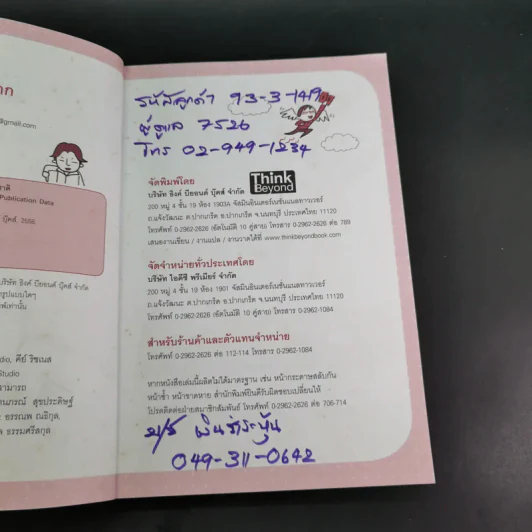 าก
@gmail.com
าติ
Publication Data
บุ๊คส์, 2556.
บริษัท ธิงค์ บียอนด์ บุ๊คส์ จำกัด
รูปแบบใดๆ
พ์เท่านั้น
dio, คีย์ ริชเนส
Studio
สามารถ
นภรณ์ สุขประดิษฐ์
ธรรมศรีสกุล
รหัสลูกค้า 93-3-1419
ผู้ดูแล 7526
โทร 02-949-1234
Think
Beyond
จัดพิมพ์โดย
บริษัท ธิงค์ บียอนด์ บุ๊คส์ จำกัด
200 หมู่ 4 ชั้น 19 ห้อง 1903A จัสมินอินเตอร์เนชั่นแนลทาวเวอร์
ถ.แจ้งวัฒนะ ต.ปากเกร็ด อ.ปากเกร็ด จ.นนทบุรี ประเทศไทย 11120
โทรศัพท์ 0-2962-2626 (อัตโนมัติ 10 คู่สาย) โทรสาร 0-2962-2626 ต่อ 789
เสนองานเขียน / งานแปล / งานวาดได้ที่ www.thinkbeyondbook.com
จัดจำหน่ายทั่วประเทศโดย
บริษัท ไอดีซี พรีเมียร์ จำกัด
200 หมู่ 4 ชั้น 19 ห้อง 1901 จัสมินอินเตอร์เนชั่นแนลทาวเวอร์
ถ.แจ้งวัฒนะ ต.ปากเกร็ด อ.ปากเกร็ด จ.นนทบุรี ประเทศไทย 11120
โทรศัพท์ 0-2962-2626 (อัตโนมัติ 10 คู่สาย) โทรสาร 0-2962-1084
สำหรับร้านค้าและตัวแทนจำหน่าย
โทรศัพท์ 0-2962-2626 ต่อ 112-114 โทรสาร 0-2962-1084
หากหนังสือเล่มนี้ผลิตไม่ได้มาตรฐาน เช่น หน้ากระดาษสลับกัน
หน้าซ้ำ หน้าขาดหาย สำนักพิมพ์ยินดีรับผิดชอบเปลี่ยนให้
โปรดติดต่อฝ่ายสมาชิกสัมพันธ์ โทรศัพท์ 0-2962-2626 ต่อ 706-714
049-311-0642